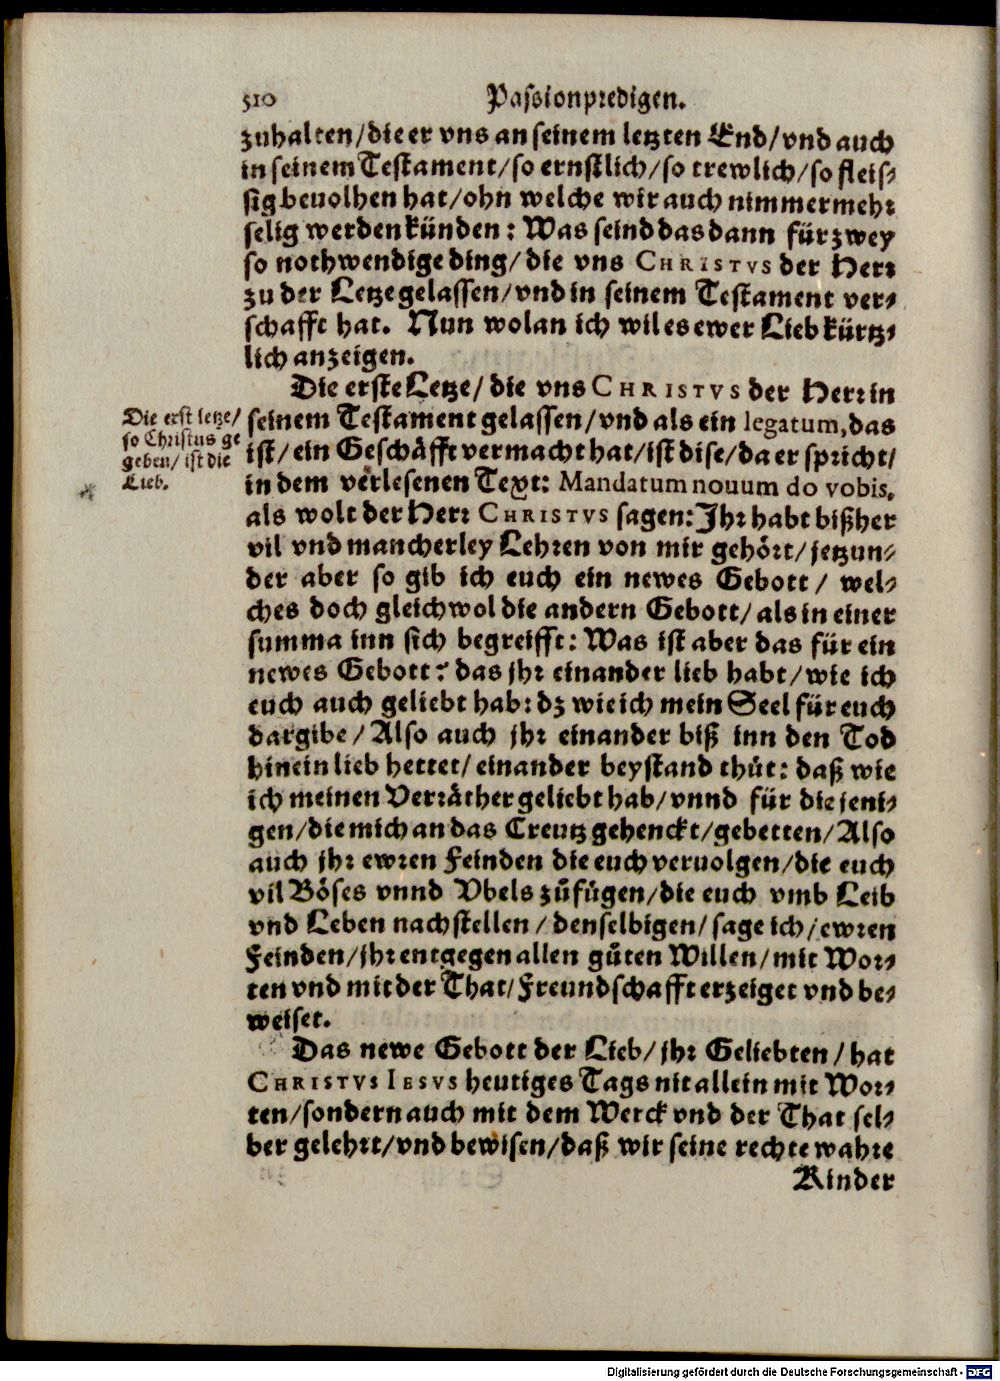 510 Passionpredigen.
zuhalten/die er vns an seinem letzten End/vnd auch
in seinem Testament/so ernstlich/so trewlich/so fleis-
sig beuolhen hat/ohn welche wir auch nimmermehr
selig werden künden: Was seind das dann für zwey
so nothwendige ding/die vns CHRISTVS der Herr
zu der Letze gelassen/vnd in seinem Testament ver-
schafft hat. Nun wolan ich wil es ewer Lieb kürtz-
lich anzeigen.
Die erste Letze/die vns CHRISTVS der Herr in
seinem Testament gelassen/vnd als ein legatum, das
ist/ein Geschäfft vermacht hat/ist dise/da er spricht/
in dem verlesenen Text: Mandatum nouum do vobis.
als wolt der Herr CHRISTVS sagen: Jhr habt bißher
vil vnd mancherley Lehren von mir gehört/jetzun-
der aber so gib ich euch ein newes Gebott/ wel-
ches doch gleichwol die andern Gebott/als in einer
summa inn sich begreifft: Was ist aber das für ein
newes Gebott? das jhr einander lieb habt/wie ich
euch auch geliebt hab: dz wie ich mein Seel für euch
dargibe/Also auch jhr einander biß inn den Tod
hinein lieb hettet/einander beystand thüt: daß wie
ich meinen Verräther geliebt hab/vnnd für die jeni-
gen/die mich an das Creutz gehenckt/gebetten/Also
auch jhr ewren Feinden die euch veruolgen/die euch
vil Böses vnnd Vbels zůfügen/die euch vmb Leib
vnd Leben nachstellen/denselbigen/sage ich/ewren
Feinden/jhr entgegen allen gůten Willen/mit Wor-
ten vnd mit der That/Freundschafft erzeiget vnd be-
weiset.
Das newe Gebott der Lieb/jhr Geliebten/hat
CHRISTVS IESVS heutiges Tags nit allein mit Wor-
ten/sondern auch mit dem Werck vnd der That sel-
ber gelehrt/vnd bewisen/daß wir seine rechte wahre
Kinder
Die erst letze/
so Christus ge
geben/ist die
Lieb.
Digitalisierung gefördert durch die Deutsche Forschungsgemeinschaft - DFG